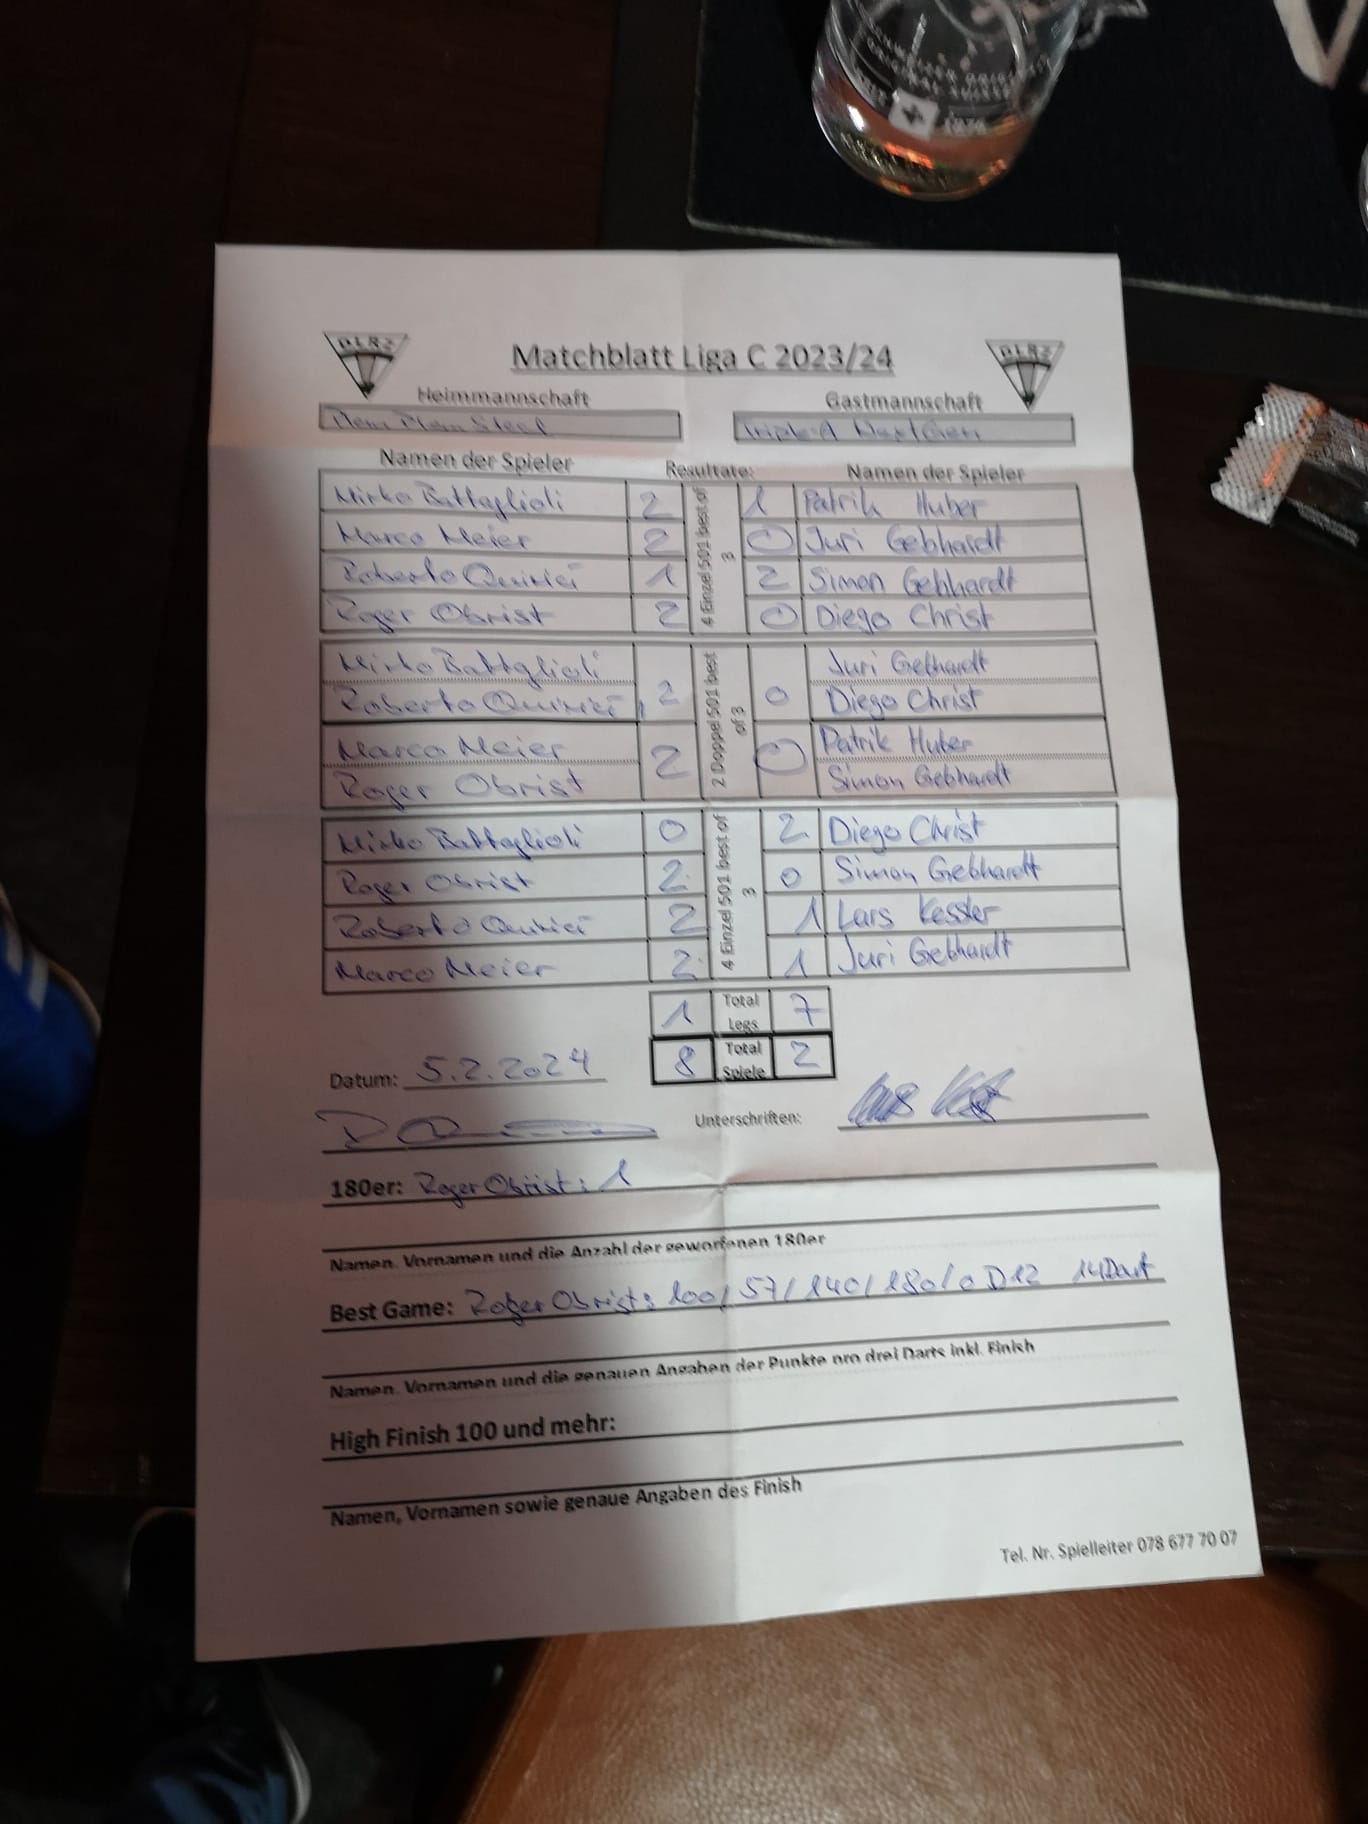 SCHWEIZER ORIGINAL
ORIGINAL SUISSE
DLRZ
Matchblatt Liga C 2023/24
DLRZ
Heimmannschaft Gastmannschaft
Plem Plem Steel Triple-A NextGen
Namen der Spieler Resultate: Namen der Spieler
Mirko Battaglioli 2 1 Patrik Huber
Marco Meier 2 0 Juri Gebhardt
Roberto Quirici 1 2 Simon Gebhardt
Roger Obrist 2 0 Diego Christ
4 Einzel 501 best of 3
Mirko Battaglioli Juri Gebhardt
Roberto Quirici 2 0 Diego Christ
Marco Meier Patrik Huber
Roger Obrist 2 0 Simon Gebhardt
2 Doppel 501 best of 3
Mirko Battaglioli 0 2 Diego Christ
Roger Obrist 2 0 Simon Gebhardt
Roberto Quirici 2 1 Lars Kessler
Marco Meier 2 1 Juri Gebhardt
4 Einzel 501 best of 3
1 Total Legs 7
8 Total Spiele 2
Datum: 5.2.2024
Unterschriften:
180er: Roger Obrist: 1
Namen, Vornamen und die Anzahl der geworfenen 180er
Best Game: Roger Obrist: 100/57/140/180/0 D12 14Dart
Namen, Vornamen und die genauen Angaben der Punkte pro drei Darts inkl. Finish
High Finish 100 und mehr:
Namen, Vornamen sowie genaue Angaben des Finish
Tel. Nr. Spielleiter 078 677 70 07